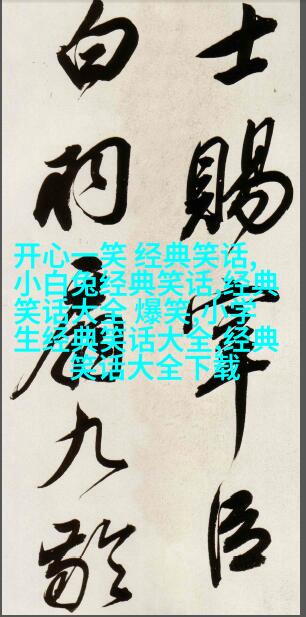 士賜宰臣
白羽扇九齡
开心一笑 经典笑话,
小白兔经典笑话,经典
笑话大全 爆笑,小学
生经典笑话大全,经典
笑话大全下载